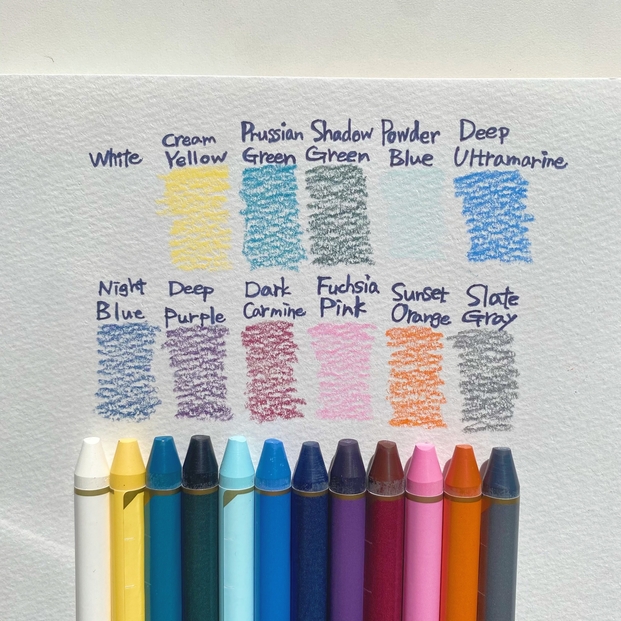 White
Cream
Yellow
Prussian
Green
Shadow
Green
Powder
Blue
Deep
Ultramarine
Night
Blue
Deep
Purple
Dark
Carmine
Fuchsia
Pink
Sunset
Orange
Slate
Gray